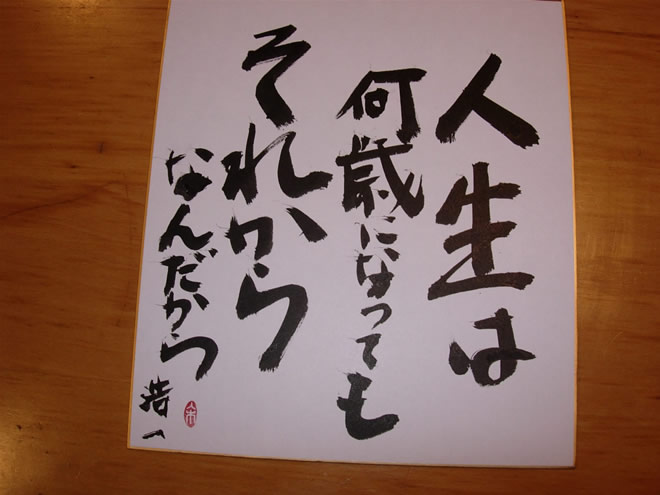 人生は
何歳になっても
それから
なんだから
浩一